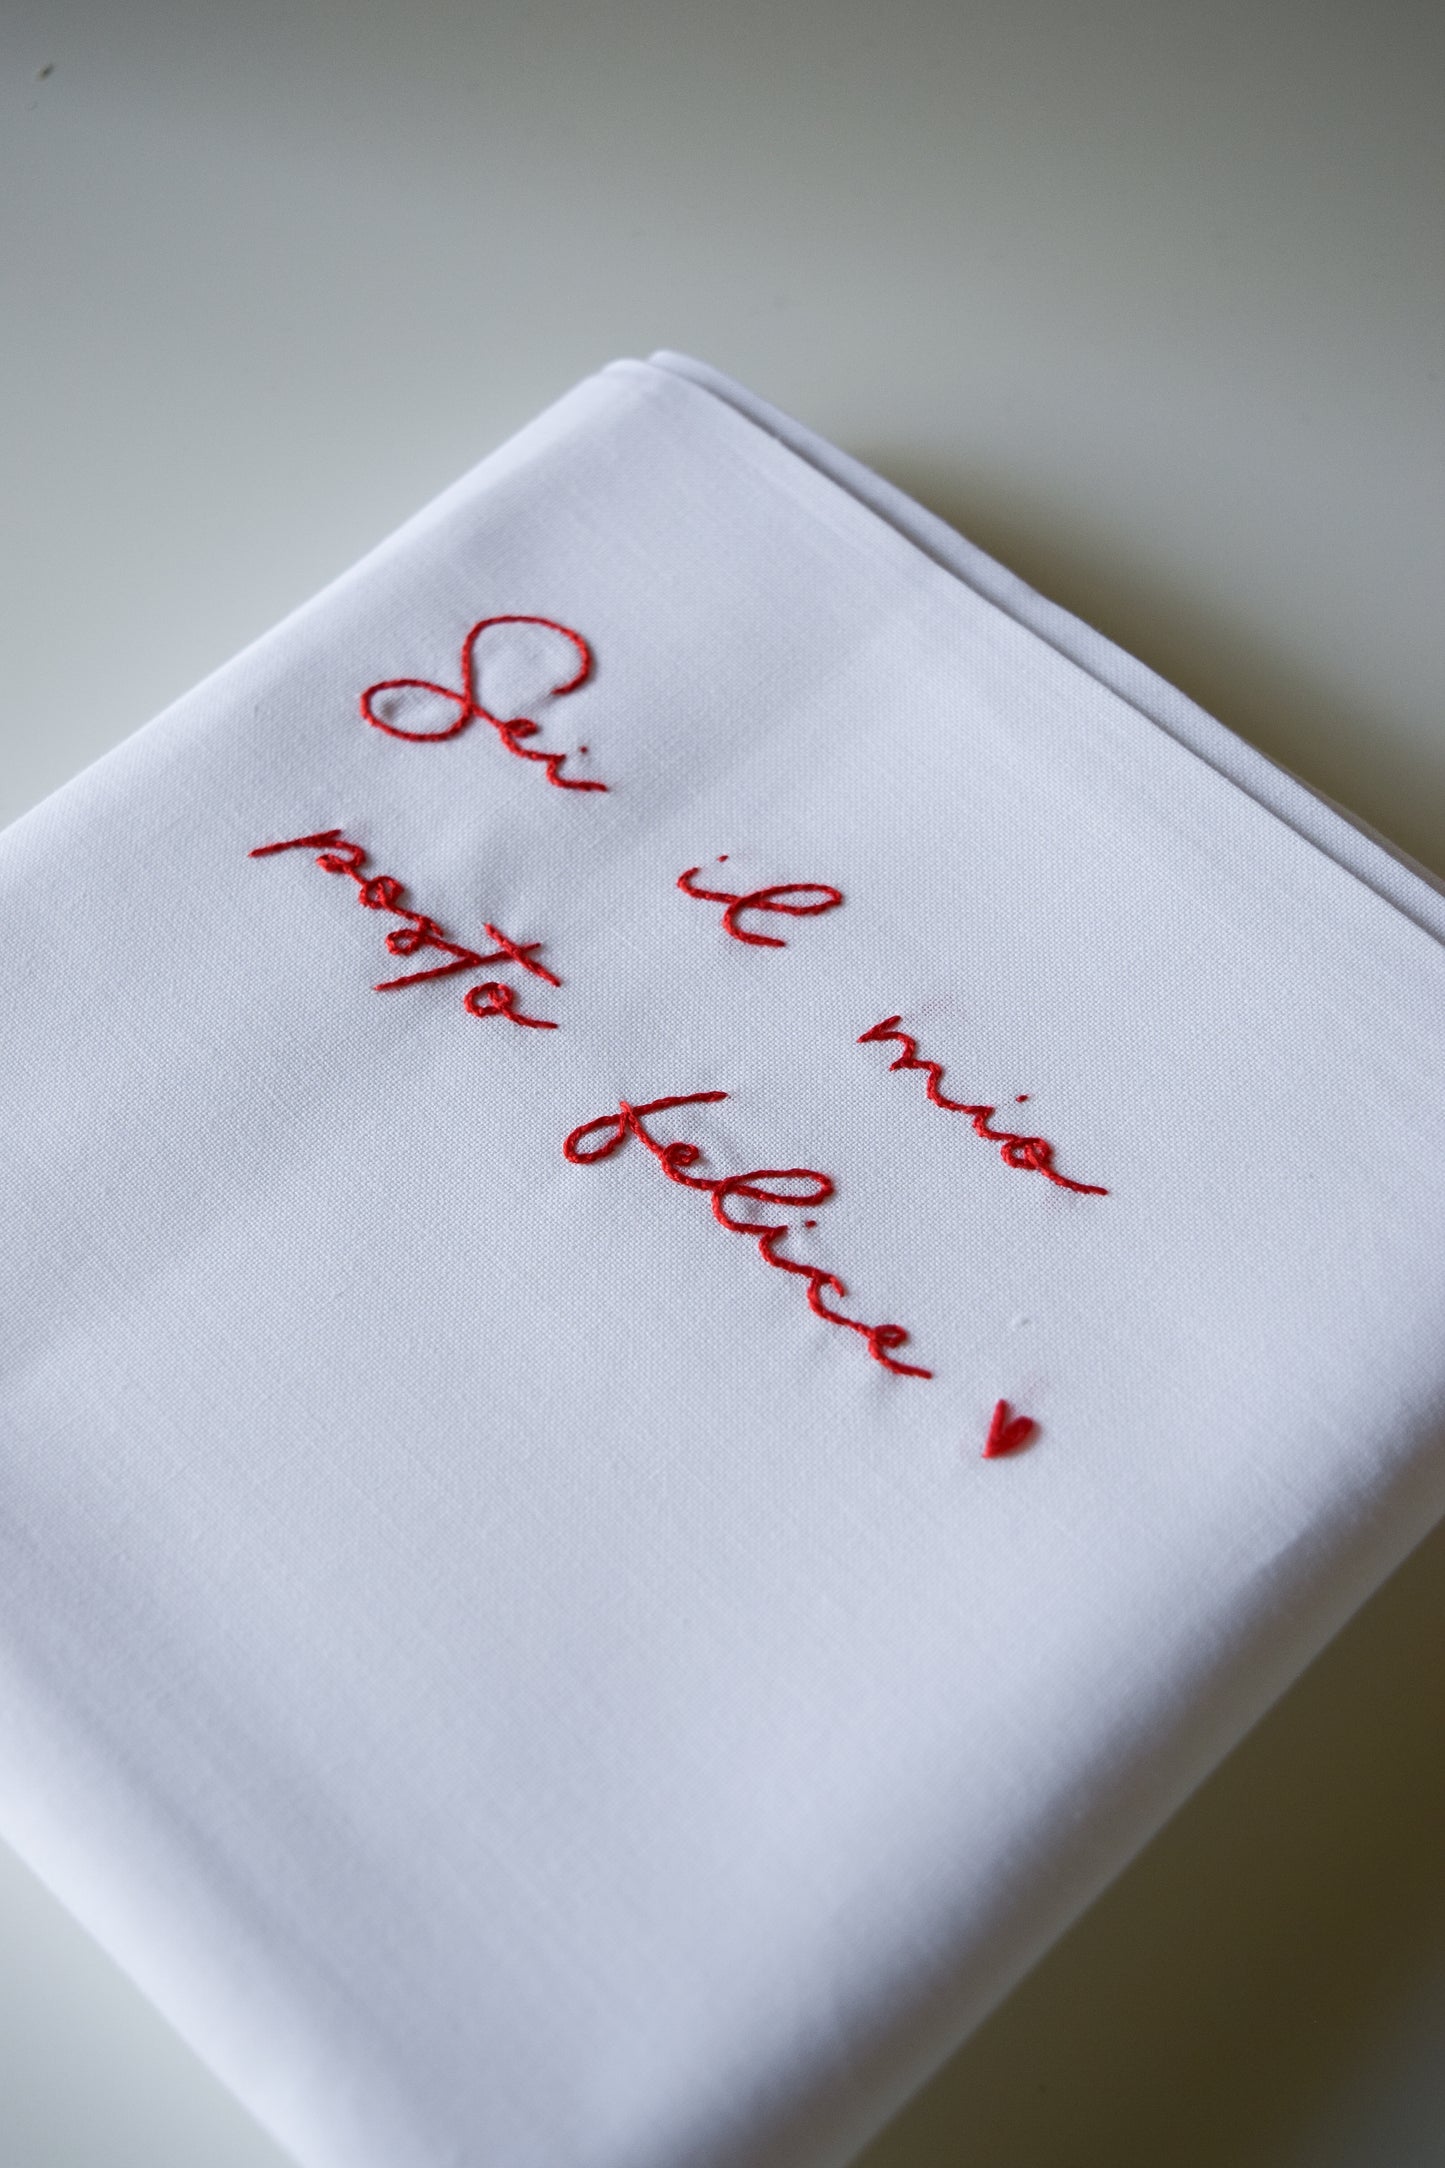 Sei il mio
posto felice ♥